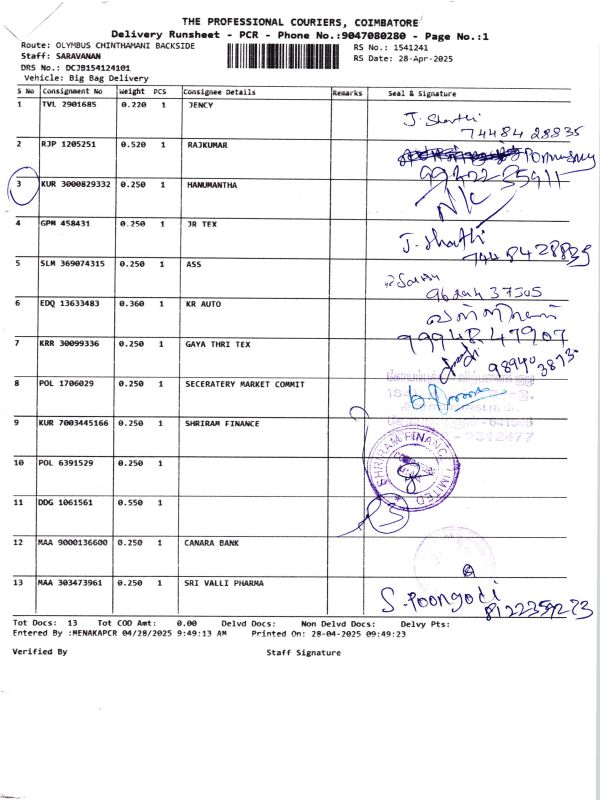 THE PROFESSIONAL COURIERS, COIMBATORE
Delivery Runsheet - PCR - Phone No.:9047080280 - Page No.:1
Route: OLYMBUS CHINTHAMANI BACKSIDE RS No.: 1541241
Staff: SARAVANAN RS Date: 28-Apr-2025
DRS No.: DCJB154124101
Vehicle: Big Bag Delivery
S No Consignment No Weight PCS Consignee Details Remarks Seal & Signature
1 TVL 2901685 0.220 1 JENCY
J. Shanthi
74484 28835
2 RJP 1205251 0.520 1 RAJKUMAR
3 KUR 3000829332 0.250 1 HANUMANTHA
N/C
4 GPM 458431 0.250 1 JR TEX
J. Shathi
7448428835
5 SLM 369074315 0.250 1 ASS
37305
6 EDQ 13633483 0.360 1 KR AUTO
99948.47907
7 KRR 30099336 0.250 1 GAYA THRI TEX
98940 3873
8 POL 1706029 0.250 1 SECERATERY MARKET COMMIT
9 KUR 7003445166 0.250 1 SHRIRAM FINANCE
SHRIRAM FINANCE LIMITED
10 POL 6391529 0.250 1
11 DDG 1061561 0.550 1
3
12 MAA 9000136600 0.250 1 CANARA BANK
13 MAA 303473961 0.250 1 SRI VALLI PHARMA
S. Poongodi
8122359273
Tot Docs: 13 Tot COD Amt: 0.00 Delvd Docs: Non Delvd Docs: Delvy Pts:
Entered By :MENAKAPCR 04/28/2025 9:49:13 AM Printed On: 28-04-2025 09:49:23
Verified By Staff Signature